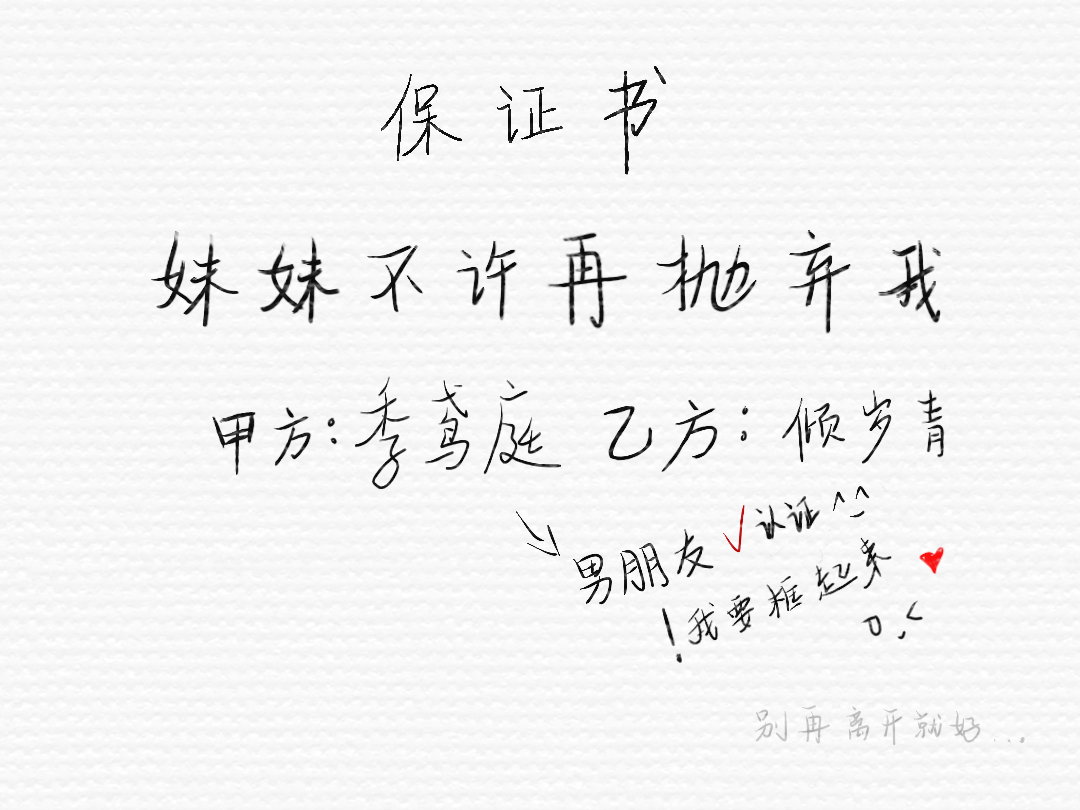 保证书
妹妹不许再抛弃我
甲方:季鸢庭 乙方:倾岁青
男朋友 √ 认证 ^_^
！我要框起来 ♥
O.<
别再离开就好...